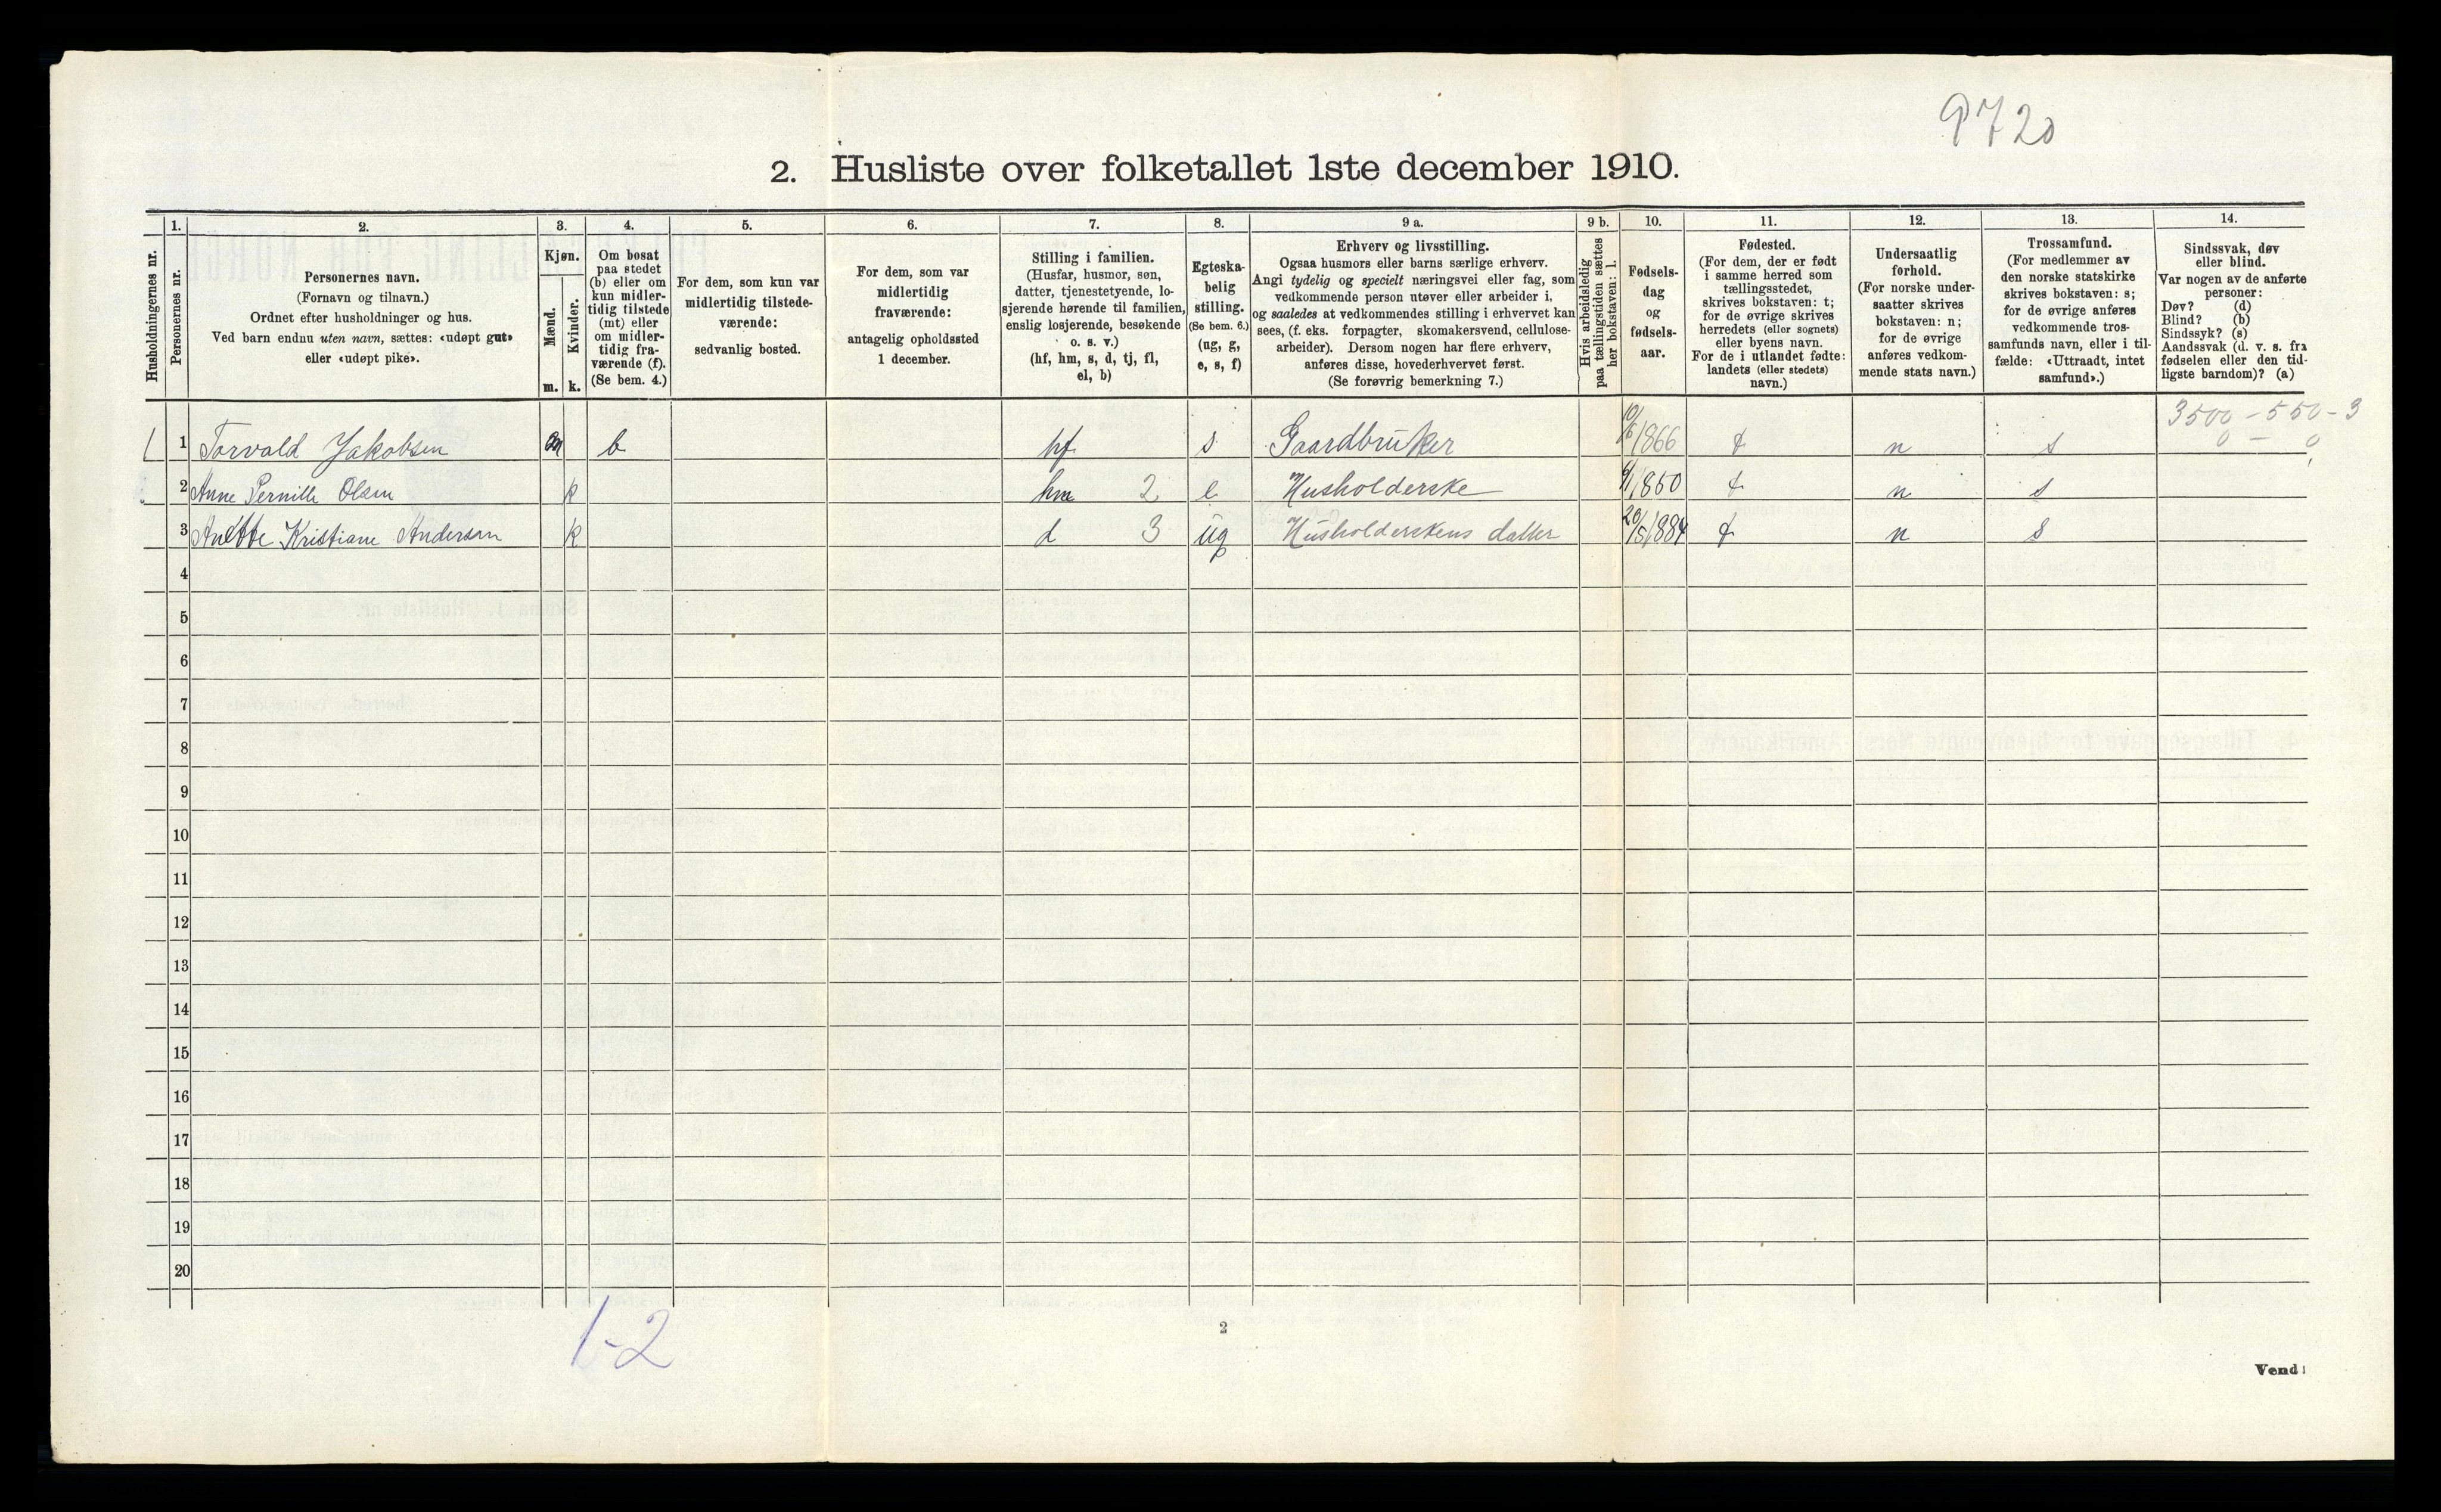 9720
2. Husliste over folketallet 1ste december 1910.
Husholdningernes nr.
1.
Personernes nr.
2.
Personernes navn.
(Fornavn og tilnavn.)
Ordnet efter husholdninger og hus.
Ved barn endnu uten navn, sættes: «udøpt gut»
eller «udøpt pike».
3.
Kjøn.
Mænd.
m.
Kvinder.
k.
4.
Om bosat
paa stedet
(b) eller om
kun midler-
tidig tilstede
(mt) eller
om midler-
tidig fra-
værende (f).
(Se bem. 4.)
5.
For dem, som kun var
midlertidig tilstede-
værende:
sedvanlig bosted.
6.
For dem, som var
midlertidig
fraværende:
antagelig opholdssted
1 december.
7.
Stilling i familien.
(Husfar, husmor, søn,
datter, tjenestetyende, lo-
sjerende hørende til familien,
enslig losjerende, besøkende
o. s. v.)
(hf, hm, s, d, tj, fl,
el, b)
8.
Egteska-
belig
stilling.
(Se bem. 6.)
(ug, g,
e, s, f)
9 a.
Erhverv og livsstilling.
Ogsaa husmors eller barns særlige erhverv.
Angi tydelig og specielt næringsvei eller fag, som
vedkommende person utøver eller arbeider i,
og saaledes at vedkommendes stilling i erhvervet kan
sees, (f. eks. forpagter, skomakersvend, cellulose-
arbeider). Dersom nogen har flere erhverv,
anføres disse, hovederhvervet først.
(Se forøvrig bemerkning 7.)
9 b.
Hvis arbeidsledig
paa tællingstiden sættes
her bokstaven: l.
10.
Fødsels-
dag
og
fødsels-
aar.
11.
Fødested.
(For dem, der er født
i samme herred som
tællingsstedet,
skrives bokstaven: t;
for de øvrige skrives
herredets (eller sognets)
eller byens navn.
For de i utlandet fødte:
landets (eller stedets)
navn.)
12.
Undersaatlig
forhold.
(For norske under-
saatter skrives
bokstaven: n;
for de øvrige
anføres vedkom-
mende stats navn.)
13.
Trossamfund.
(For medlemmer av
den norske statskirke
skrives bokstaven: s;
for de øvrige anføres
vedkommende tros-
samfunds navn, eller i til-
fælde: «Uttraadt, intet
samfund».)
14.
Sindssvak, døv
eller blind.
Var nogen av de anførte
personer:
Døv? (d)
Blind? (b)
Sindssyk? (s)
Aandssvak (d. v. s. fra
fødselen eller den tid-
ligste barndom)? (a)
3500 - 550 - 3
0 - 0
1 1 Torvald Jakobsen m b hf s Gaardbruker 10/6 1866 t n s
2 Anne Pernille Olsen k hm 2 e Husholderske 1850 t n s
3 Anette Kristiane Andersen k d 3 ug Husholderskens datter 20/5 1884 t n s
4
5
6
7
8
9
10
11
12
13
14
15
16
17
18
19
20
1-2
2
Vend!